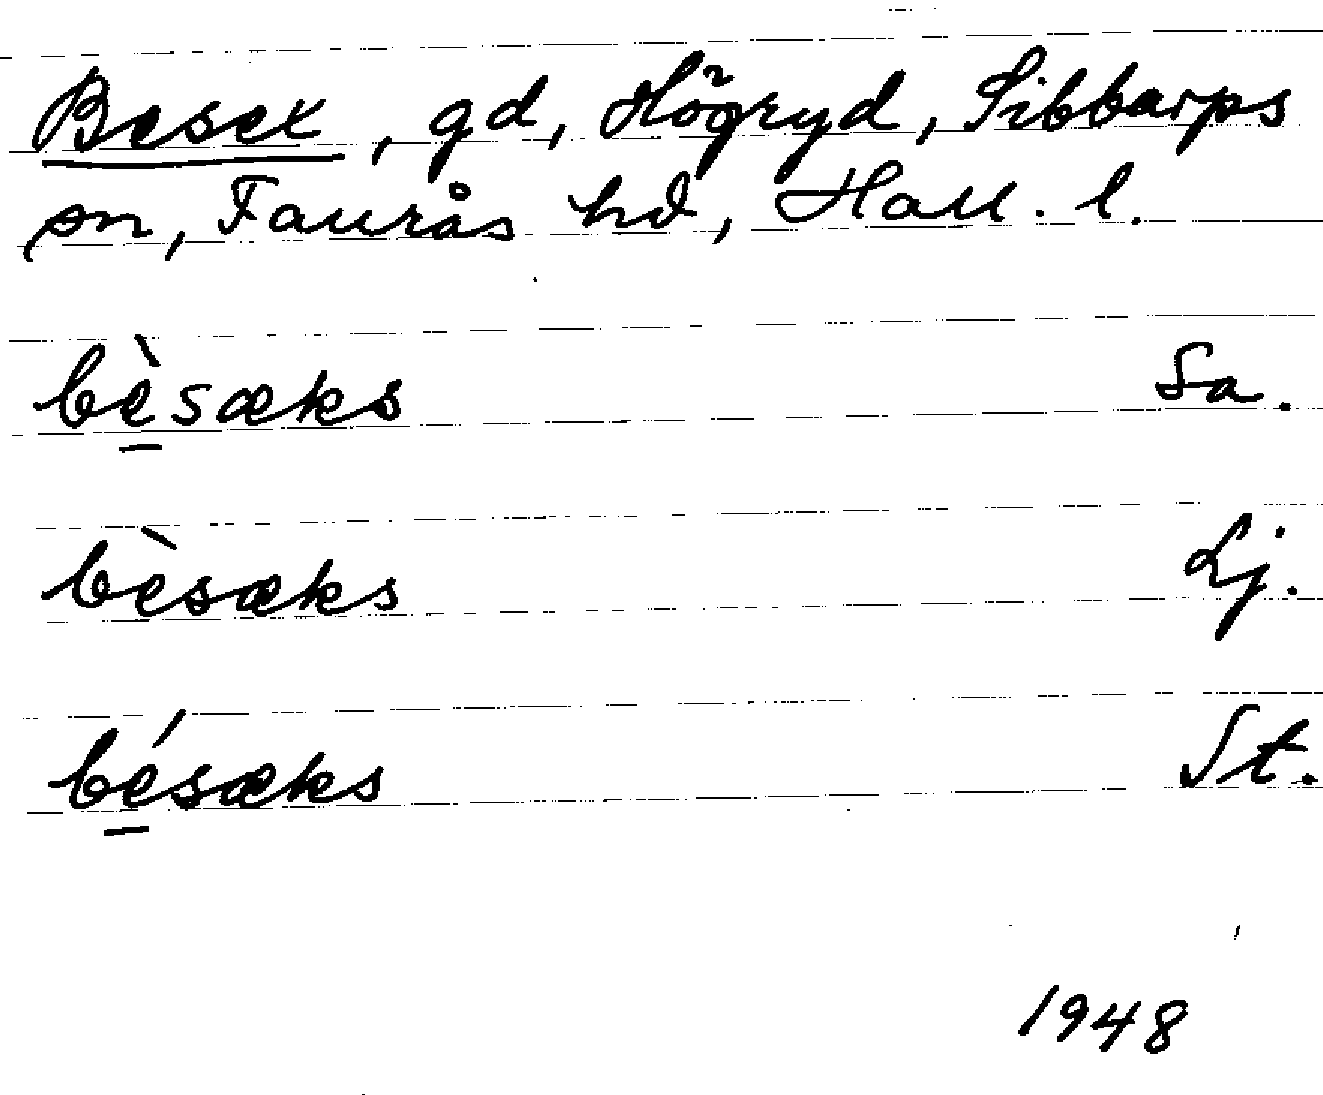 Besex, gd, Högryd, Sibbarps
sn, Faurås hd, Hall. l.
bèsæks Sa.
bèsæks Lj.
bésæks St.
1948